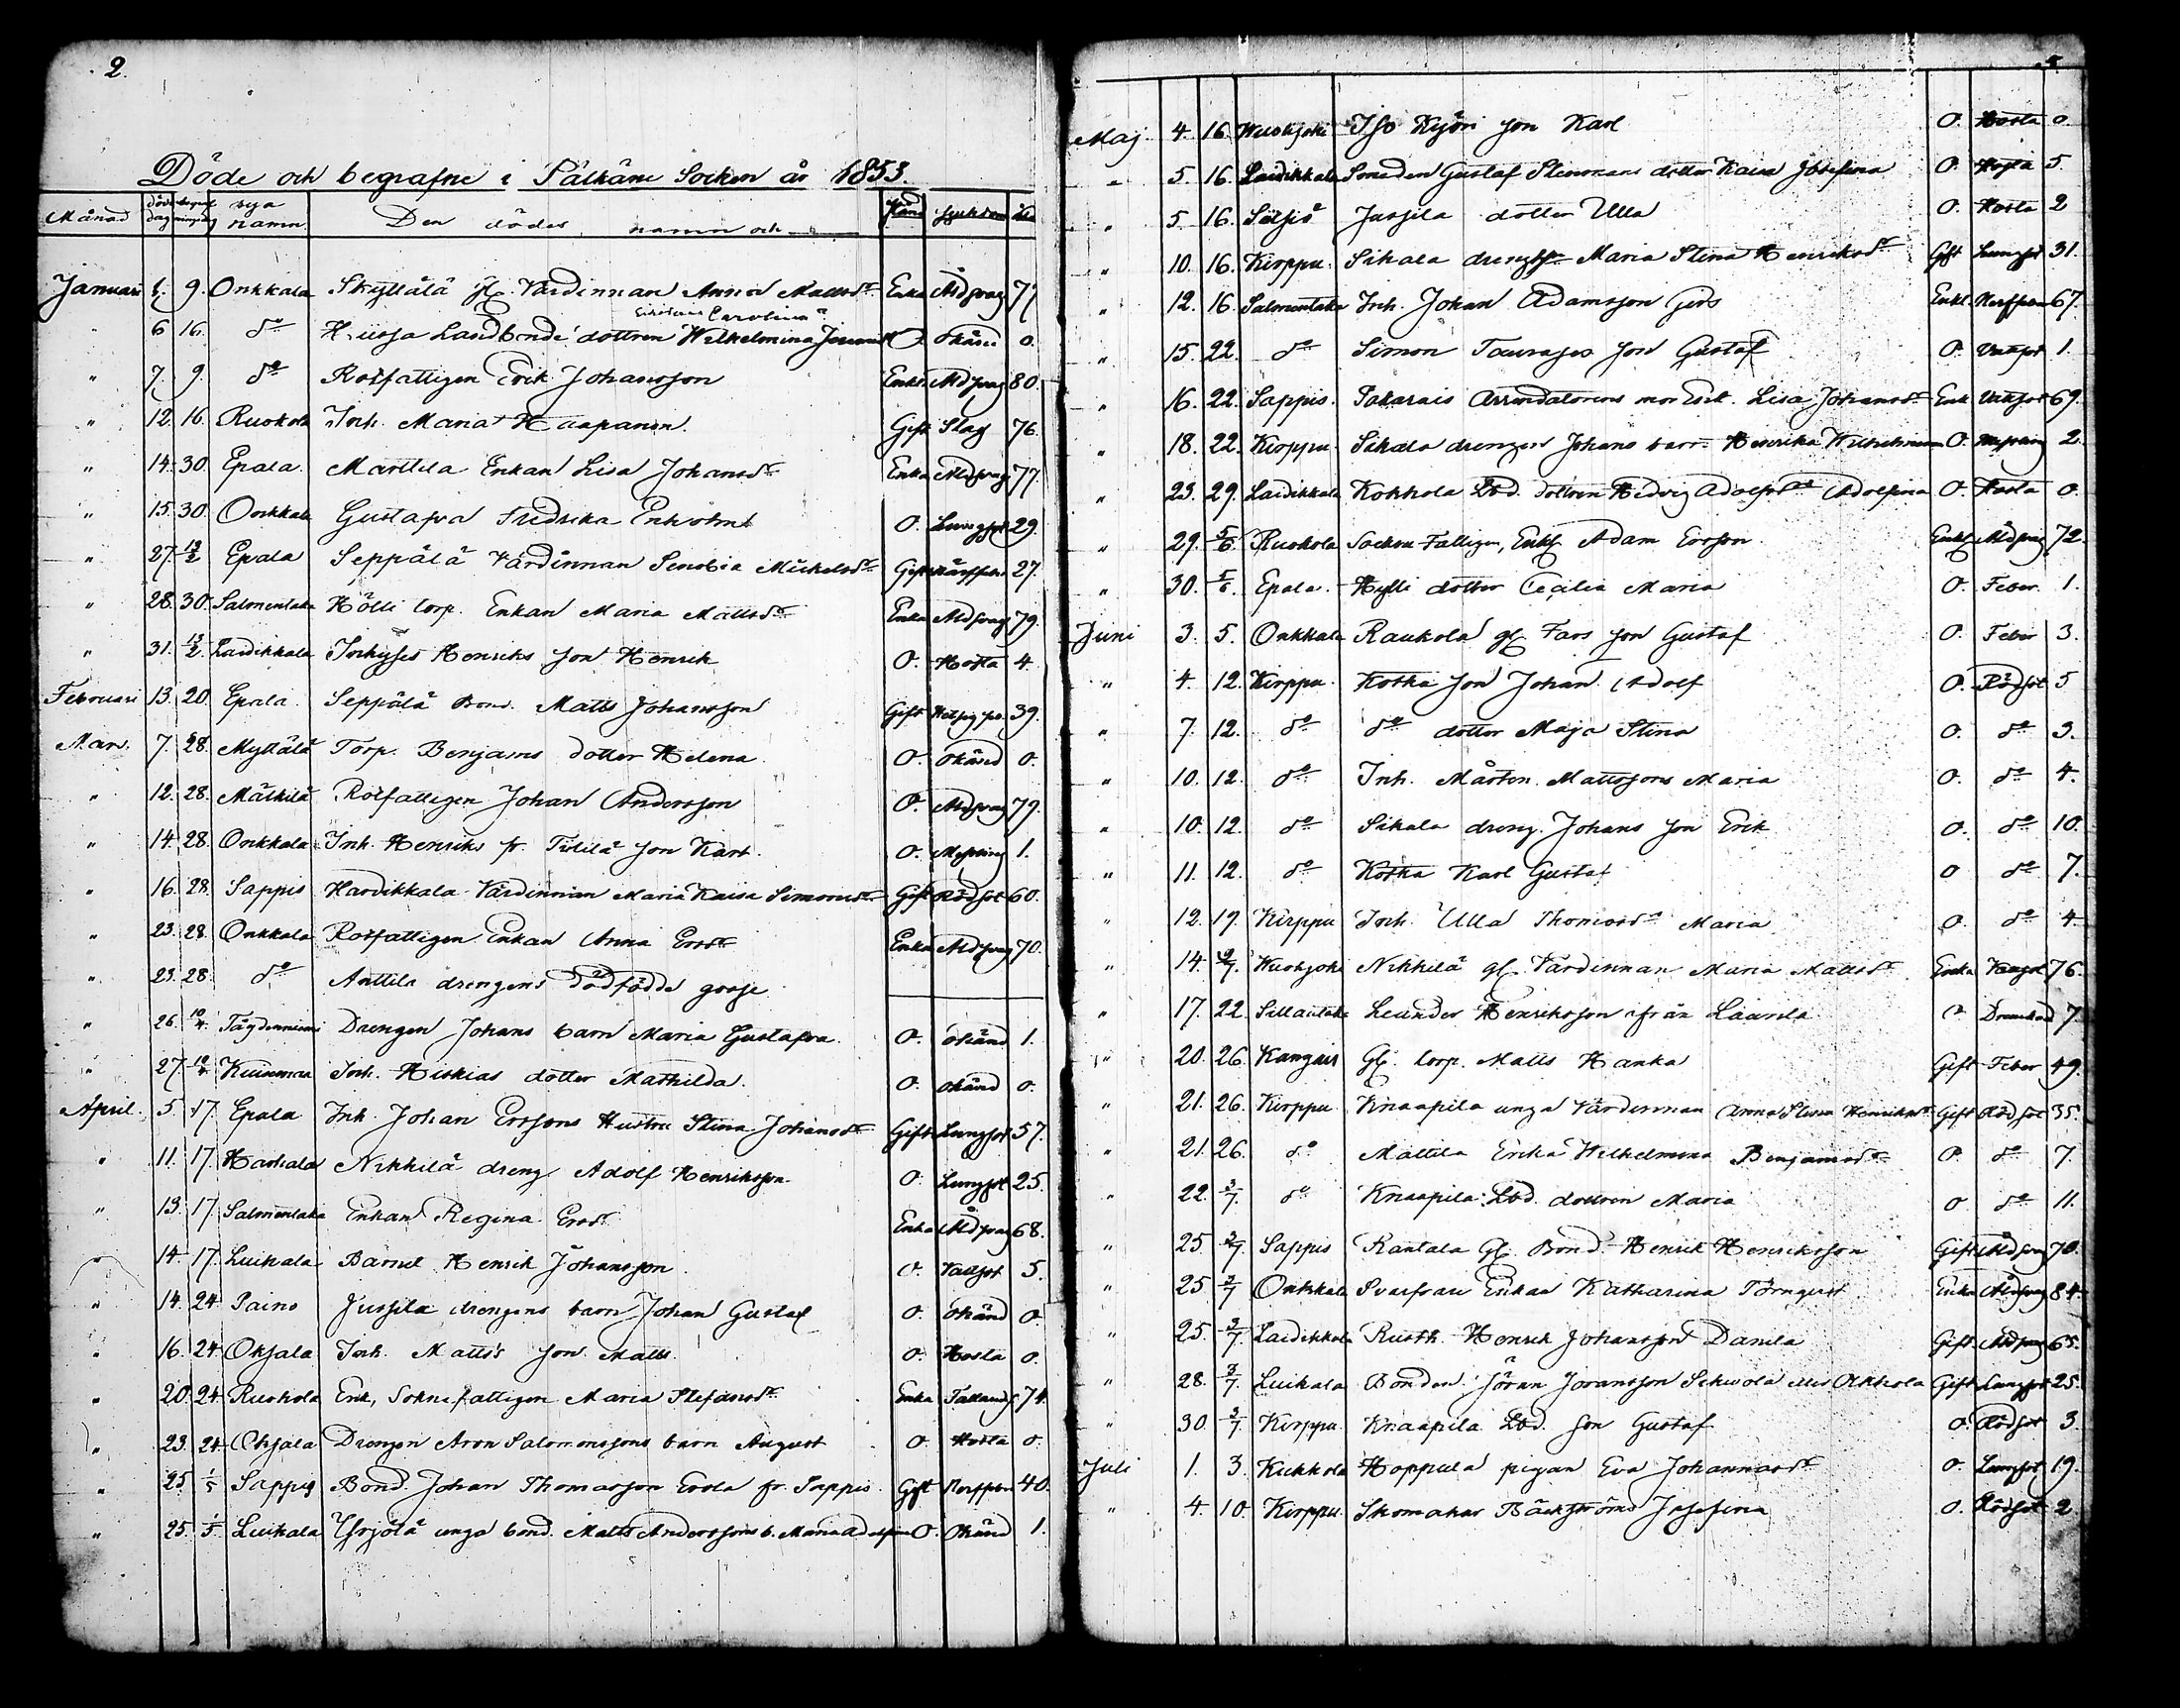 2.
Döde och begrafne i Pälkäne Socken år 1853.
Månad döds dag bya namn. Den dödes namn och Stånd Sjukdom
Januari 9. Onkkala Skyttälä gl. Värdinnan Anna Mattsdr Enka Åldsvag 77
Carolina
" 6 16. do Landbonde dottren Wilhelmina O. Okänd 0.
" 7. 9. do Rotfattigen Erik Johansson Enkl Åldsvag 80.
" 12. 16. Ruokola Inh. Maria Haapanen. Gift Slag 76.
" 14. 30. Epala. Marttila Enkan Lisa Johansdr Enka Åldsvag 77.
" 15. 30. Onkkala Gustafva Fredrika Enholm O. Lungsot 29.
" 27. 13/2 Epala Seppälä Värdinnan Michelsdr Gift 27.
" 28. 30. Salmentaka Hölli torp. Enkan Maria Mattsdr Enka Åldsvag 79.
" 31. 13/2. Laidikkala Henriks son Henrik O. Hosta 4.
Februari 13. 20. Epala Seppälä Bond. Matts Johansson Gift 39.
Mars. 7. 28. Myttälä Torp. Benjams dotter Helena. O. Okänd 0.
" 12. 28. Mälkilä Rotfattigen Johan Andersson O. Åldsvag 79.
" 14. 28. Onkkala Inh. Henriks fr. son Karl. O. Messling 1.
" 16. 28. Sappis Haidikkala Värdinnan Maria Kaisa Simonsdr Gift Rödsot 60.
" 23. 28. Onkkala Rotfattigen Enkan Anna Ersdr Enka Åldsvag 70.
" 23. 28. do Anttila drengens dödfödde gosse
" 26. 10/4. Drengen Johans barn Maria Gustafva. O. okänd 1.
" 27. 10/4 Kuisema Inh. Hiskias dotter Mathilda. O. okänd 0.
April. 5. 17. Epala Inh. Johan Erssons Hustru Stina Johansdr Gift Lungsot 57.
" 11. 17. Harhala Nikkilä dreng Adolf Henriksson. O. Lungsot 25.
" 13. 17. Salmentaka Enkan Regina Ersdr Enka Åldsvag 68.
" 14. 17. Luikala Barnet Henrik Johansson. O. Vattsot 5.
" 14. 24 Painó Jussila drengens barn Johan Gustaf O. Okänd 0.
" 16. 24. Ohjala Inh. Matts's son Matts. O. Hosta 0.
" 20. 24. Ruokola Enk, Soknefattigen Maria Stefansdr Enka 74.
" 23. 24. Ohjala Drengen Aron Salomonssons barn August O. Hosta 0.
" 25. 1/5 Sappis Bond. Johan Thomasson Erola fr. Sappis. Gift 40.
" 25. 1/5 Luikala Yrjölä unga bond. Matts Anderssons b. Maria Adolfina O. Okänd 1.
Maj 4. 16. Iso Kyöri son Karl O. Hosta 0.
" 5. 16. Laidikkala Smeden Gustaf Stenmans dotter Kaisa Josefina O. Hosta 5.
" 5. 16. Jussila dotter Ulla O. Hosta 2
" 10. 16. Kirppu. Sikala drengh Maria Stina Henriksdr Gift Lungsot 31.
" 12. 16. Salmentaka Inh. Johan Adamsson Enkl. 67.
" 15. 22. do Simon son Gustaf O. Vattsot 1.
" 16. 22. Sappis. Pakarais Arrendatorens mor Enk. Lisa Johansdr Enk Vattsot 69.
" 18. 22. Kirppu. Sikala drengen Johans barn Henrika Wilhelmina O. Messling 2.
" 23. 29. Laidikkala Kokkola Lbd. dottren Hedvig Adolfsdr Adolfina O. Hosta 0.
" 29. 5/6. Ruokola Socken Fattigen, Enkl Adam Ersson. Enkl Åldsvag 72.
" 30. 5/6. Epala. Hylli dotter Cecilia Maria O. Feber. 1.
Juni 3. 5. Onkkala Raukola gl. Fars son Gustaf O. Feber 3.
" 4. 12. Kirppu. Kotka son Johan Adolf O. Rödsot 5
" 7. 12. do do dotter Maja Stina O. do 3.
" 10. 12. do Inh. Mårten Mattssons Maria O. do 4.
" 10. 12. do Sikala dreng. Johans son Erik O. do 10.
" 11. 12. do Kotka Karl Gustaf O do 7.
" 12. 19. Kirppu Inh. Ulla Thomasdr Maria O. do 4
" 14. Nikkilä gl. Värdinnan Maria Mattsdr Enka 76.
" 17. 22. Leander Henriksson ifrån Laurila O 7.
" 20. 26. Kangais Gl. torp. Matts Hanka Gift Feber 49.
" 21. 26. Kirppu Knaapila unga Värdinnan Anna Stina Henriksdr Gift Rödsot 35.
" 21. 26. do Mattila Erika Wilhelmina Benjamsdr O. do 7.
" 22. 3/7. do Knaapila Lbd. dottren Maria O do 11.
" 25. 3/7 Sappis Rantala Gl. Bond. Henrik Henriksson Gift Åldsvag 70.
" 25. 3/7 Onkkala Enkan Katharina Törnqvist Enka Åldsvag 84
" 25. 3/7. Laidikkala Rusth. Henrik Johansson Danila Gift Åldsvag 65.
" 28. 3/7. Luikala Bonden Jöran Joransson Gift Lungsot 25.
" 30. 3/7. Kirppu. Knaapila Lbd. son Gustaf O. Rödsot 3.
Juli 1. 3. Kukkola Hoppula pigan Eva Johannasdr O. Lungsot 19.
" 4. 10. Kirppu. Skomakar Bäckströms Josefina O. Rödsot 2